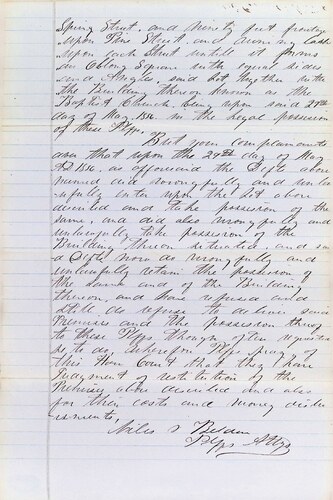 Spring Street, and ninety feet fronting
upon Pine Street, and drawing back
upon each Street untill it forms
an Oblong Square with equal sides
and Angles, said lot together with
the Building thereon known as the
Baptist Church, being upon said 29th
day of May 1856 in the legal possession
of these Plffs.
But your complainants
aver that upon the 29th day of May
AD 1856, as aforesaid the Defts above
named did wrongfully and unla-
wfully enter upon the lot above
described and take possession of the
same, and did also wrongfully and
unlawfully take possession of the
Building thereon situated, and sai
d Defts now do wrongfully and
unlawfully retain the possession of
the same and of the Building
thereon, and have refused and
still do refuse to deliver said
Premises and the possession thereof
to these Plffs though often requested
so to do, wherefore Plffs pray of
this Hon. Court that they have
Judgment of restitution of the
Premises above described and also
for their costs and money disbur
sements.
Niles &
Plffs Attys